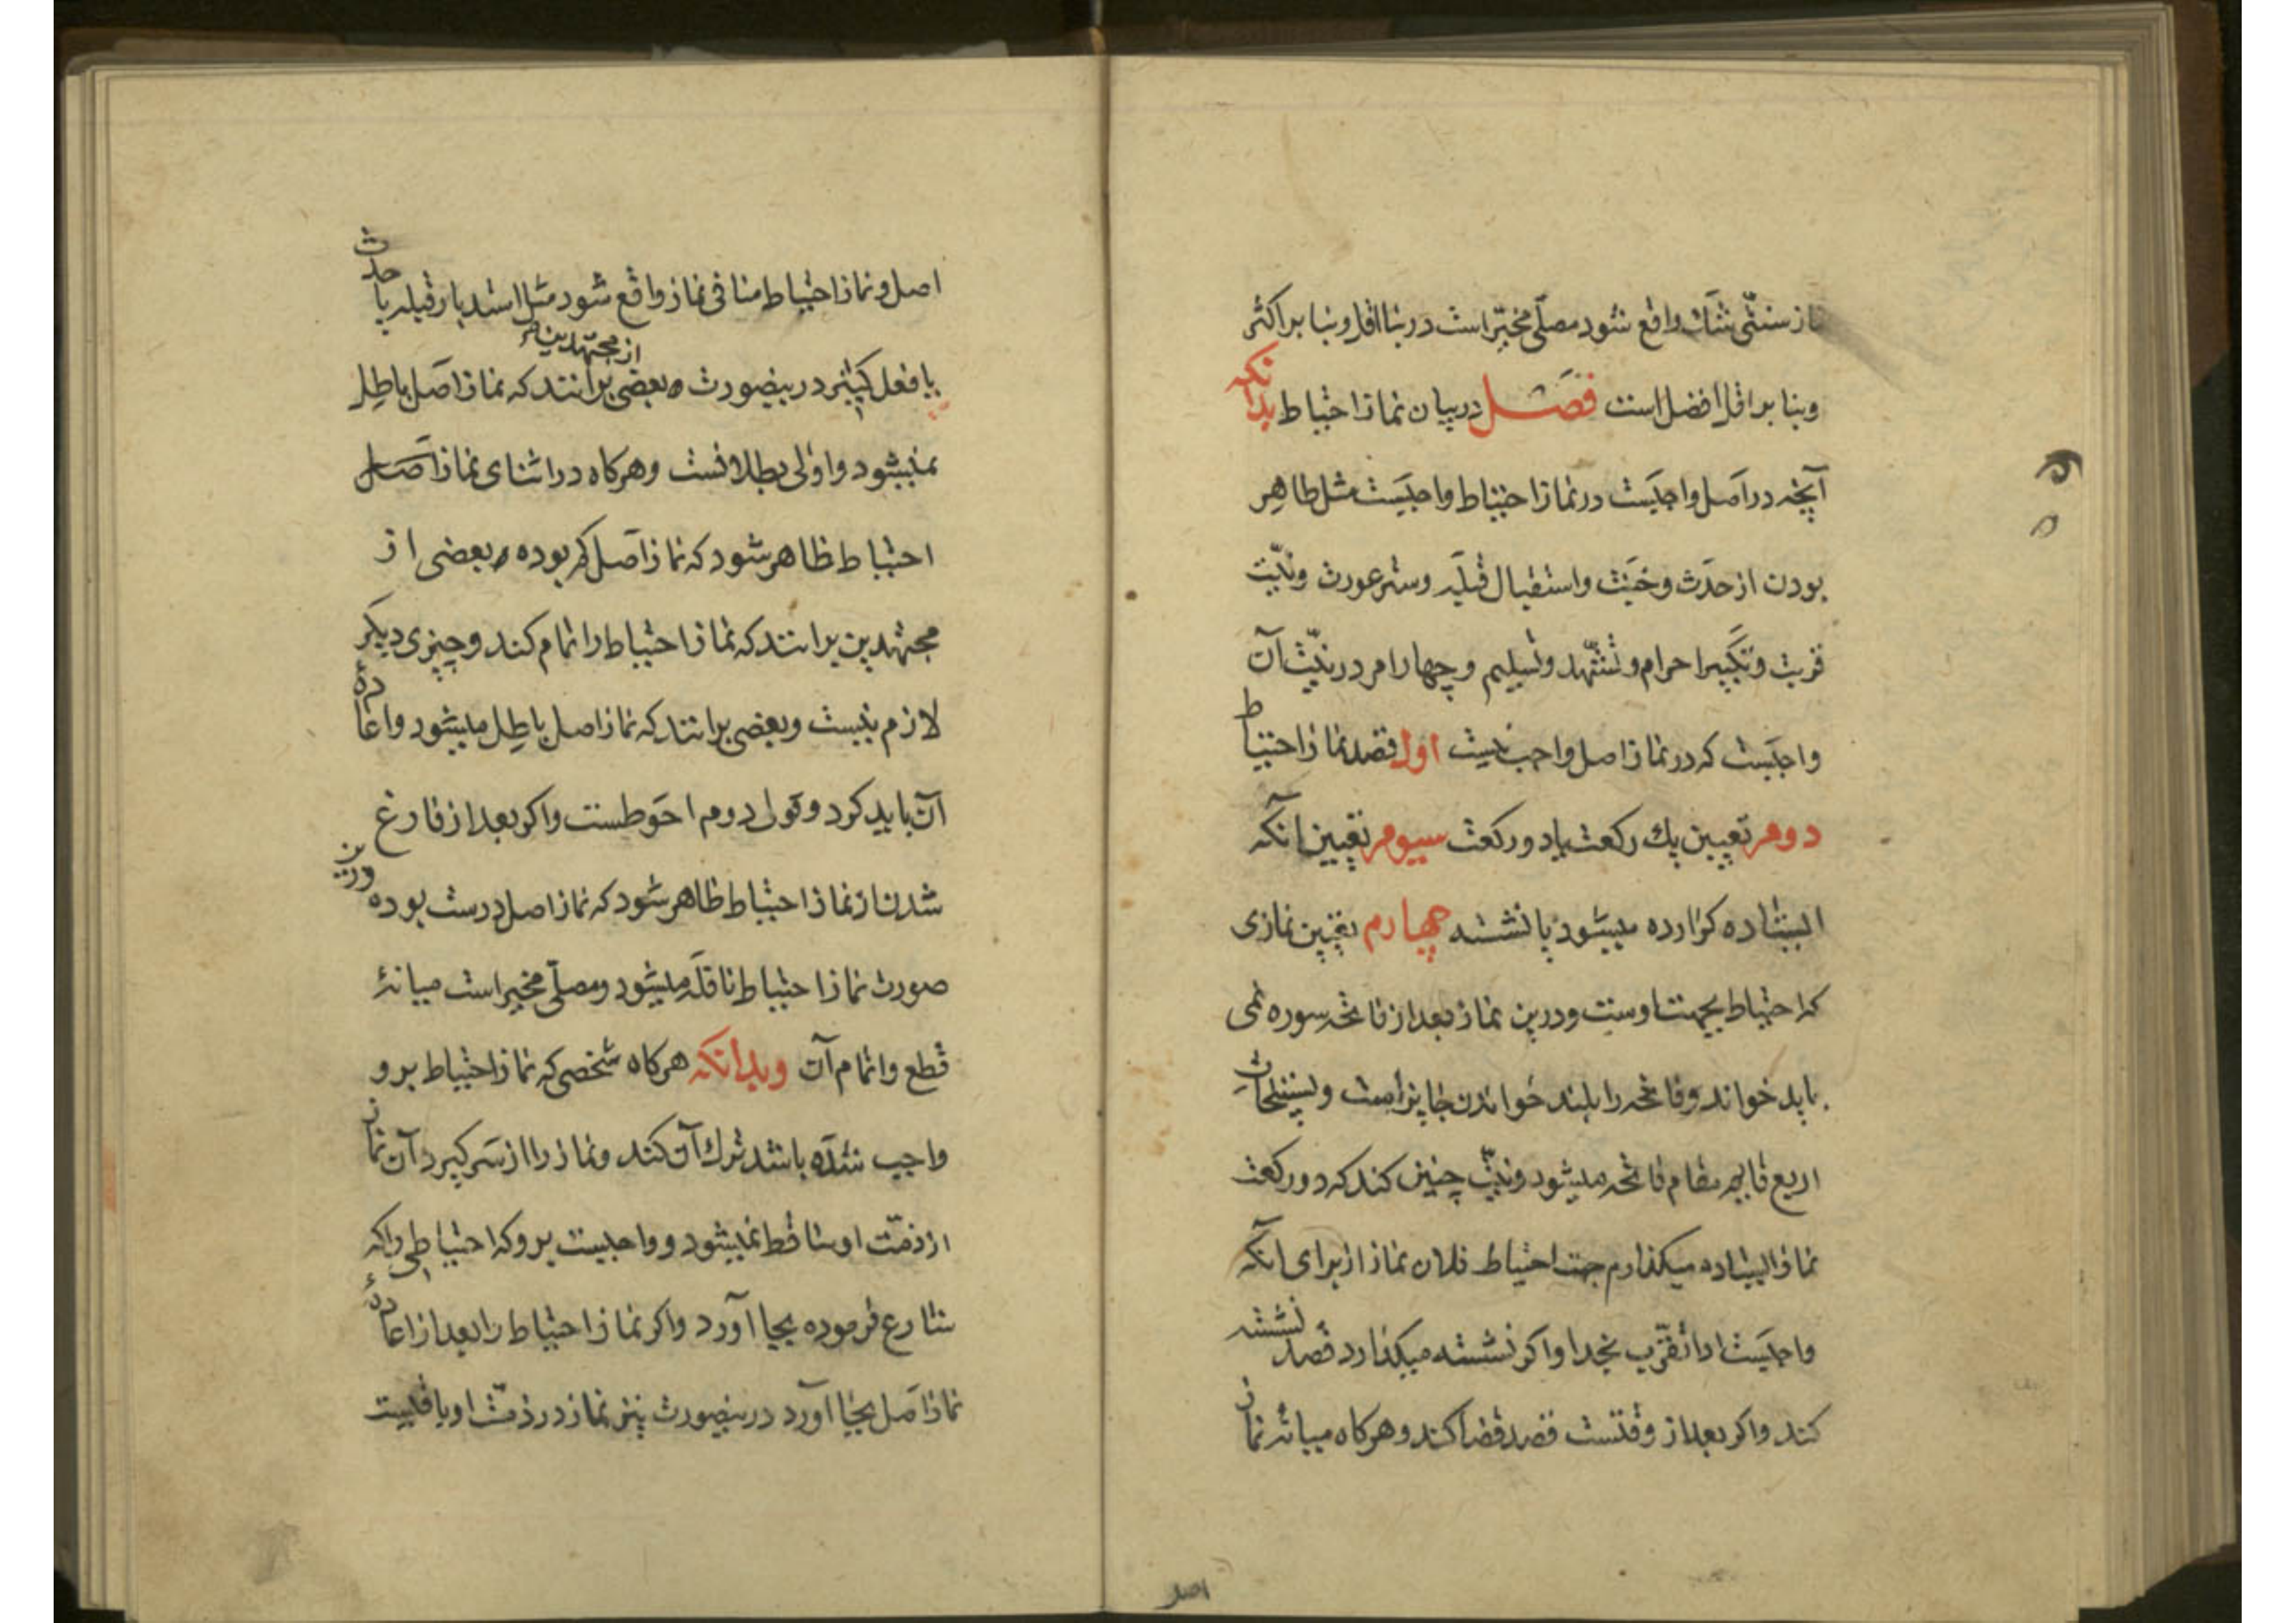 نماز سنتی شک واقع شود مصلّی مخیّر است در بنا اقل و بنا بر اکثر
و بنا بر اقل افضل است فصل در بیان نماز احتیاط بدانکه
آنچه در اصل واجبست در نماز احتیاط واجبست مثل طاهر
بودن از حدث و خبث و استقبال قبله و ستر عورت و نیّت
قربت و تکبیر احرام و تشهّد و تسلیم و چهار امر در نیّت آن
واجبست که در نماز اصل واجب نیست اول قصد نماز احتیاط
دوم تعیین یک رکعت یا دو رکعت سیوم تعیین آنکه
ایستاده کزارده میشود یا نشسته چهارم تعیین نمازی
که احتیاط بجهت اوست و درین نماز بعد از فاتحه سوره نمی
باید خواند و فاتحه را بلند خواندن جایز است و تسبیحات
اربع قایم مقام فاتحه میشود و نیّت چنین کند که دو رکعت
نماز ایستاده میکذارم جهت احتیاط فلان نماز از برای آنکه
واجبست ادا تقرّب بخدا و اکر نشسته میکذارد قصد نشسته
کند و اکر بعد از وقتست قصد قضا کند و هرکاه میانه نماز
اصل
اصل و نماز احتیاط منافی نماز واقع شود مثل استدبار قبله یا حدث
یا فعل کثیر درینصورت بعضی از مجتهدین برانند که نماز اصل باطل
نمیشود و اولی بطلانست و هرکاه در اثنای نماز اصل
احتیاط ظاهر شود که نماز اصل کم بوده بعضی از
مجتهدین برانند که نماز احتیاط را تمام کند و چیزی دیکر
لازم نیست و بعضی برانند که نماز اصل باطل میشود و اعادهٔ
آن باید کرد و قول دوم احوطست و اکر بعد از فارغ
شدن از نماز احتیاط ظاهر شود که نماز اصل درست بوده درین
صورت نماز احتیاط نافله میشود و مصلّی مخیر است میانهٔ
قطع و اتمام آن و بدانکه هرکاه شخصی که نماز احتیاط برو
واجب شده باشد ترک آن کند و نماز را از سر کیرد آن نماز
از ذمّت او ساقط نمیشود و واجبست برو که احتیاطی را که
شارع فرموده بجا آورد و اکر نماز احتیاط را بعد از اعادهٔ
نماز اصل بجا آورد درینصورت نیز نماز در ذمّت او باقیست